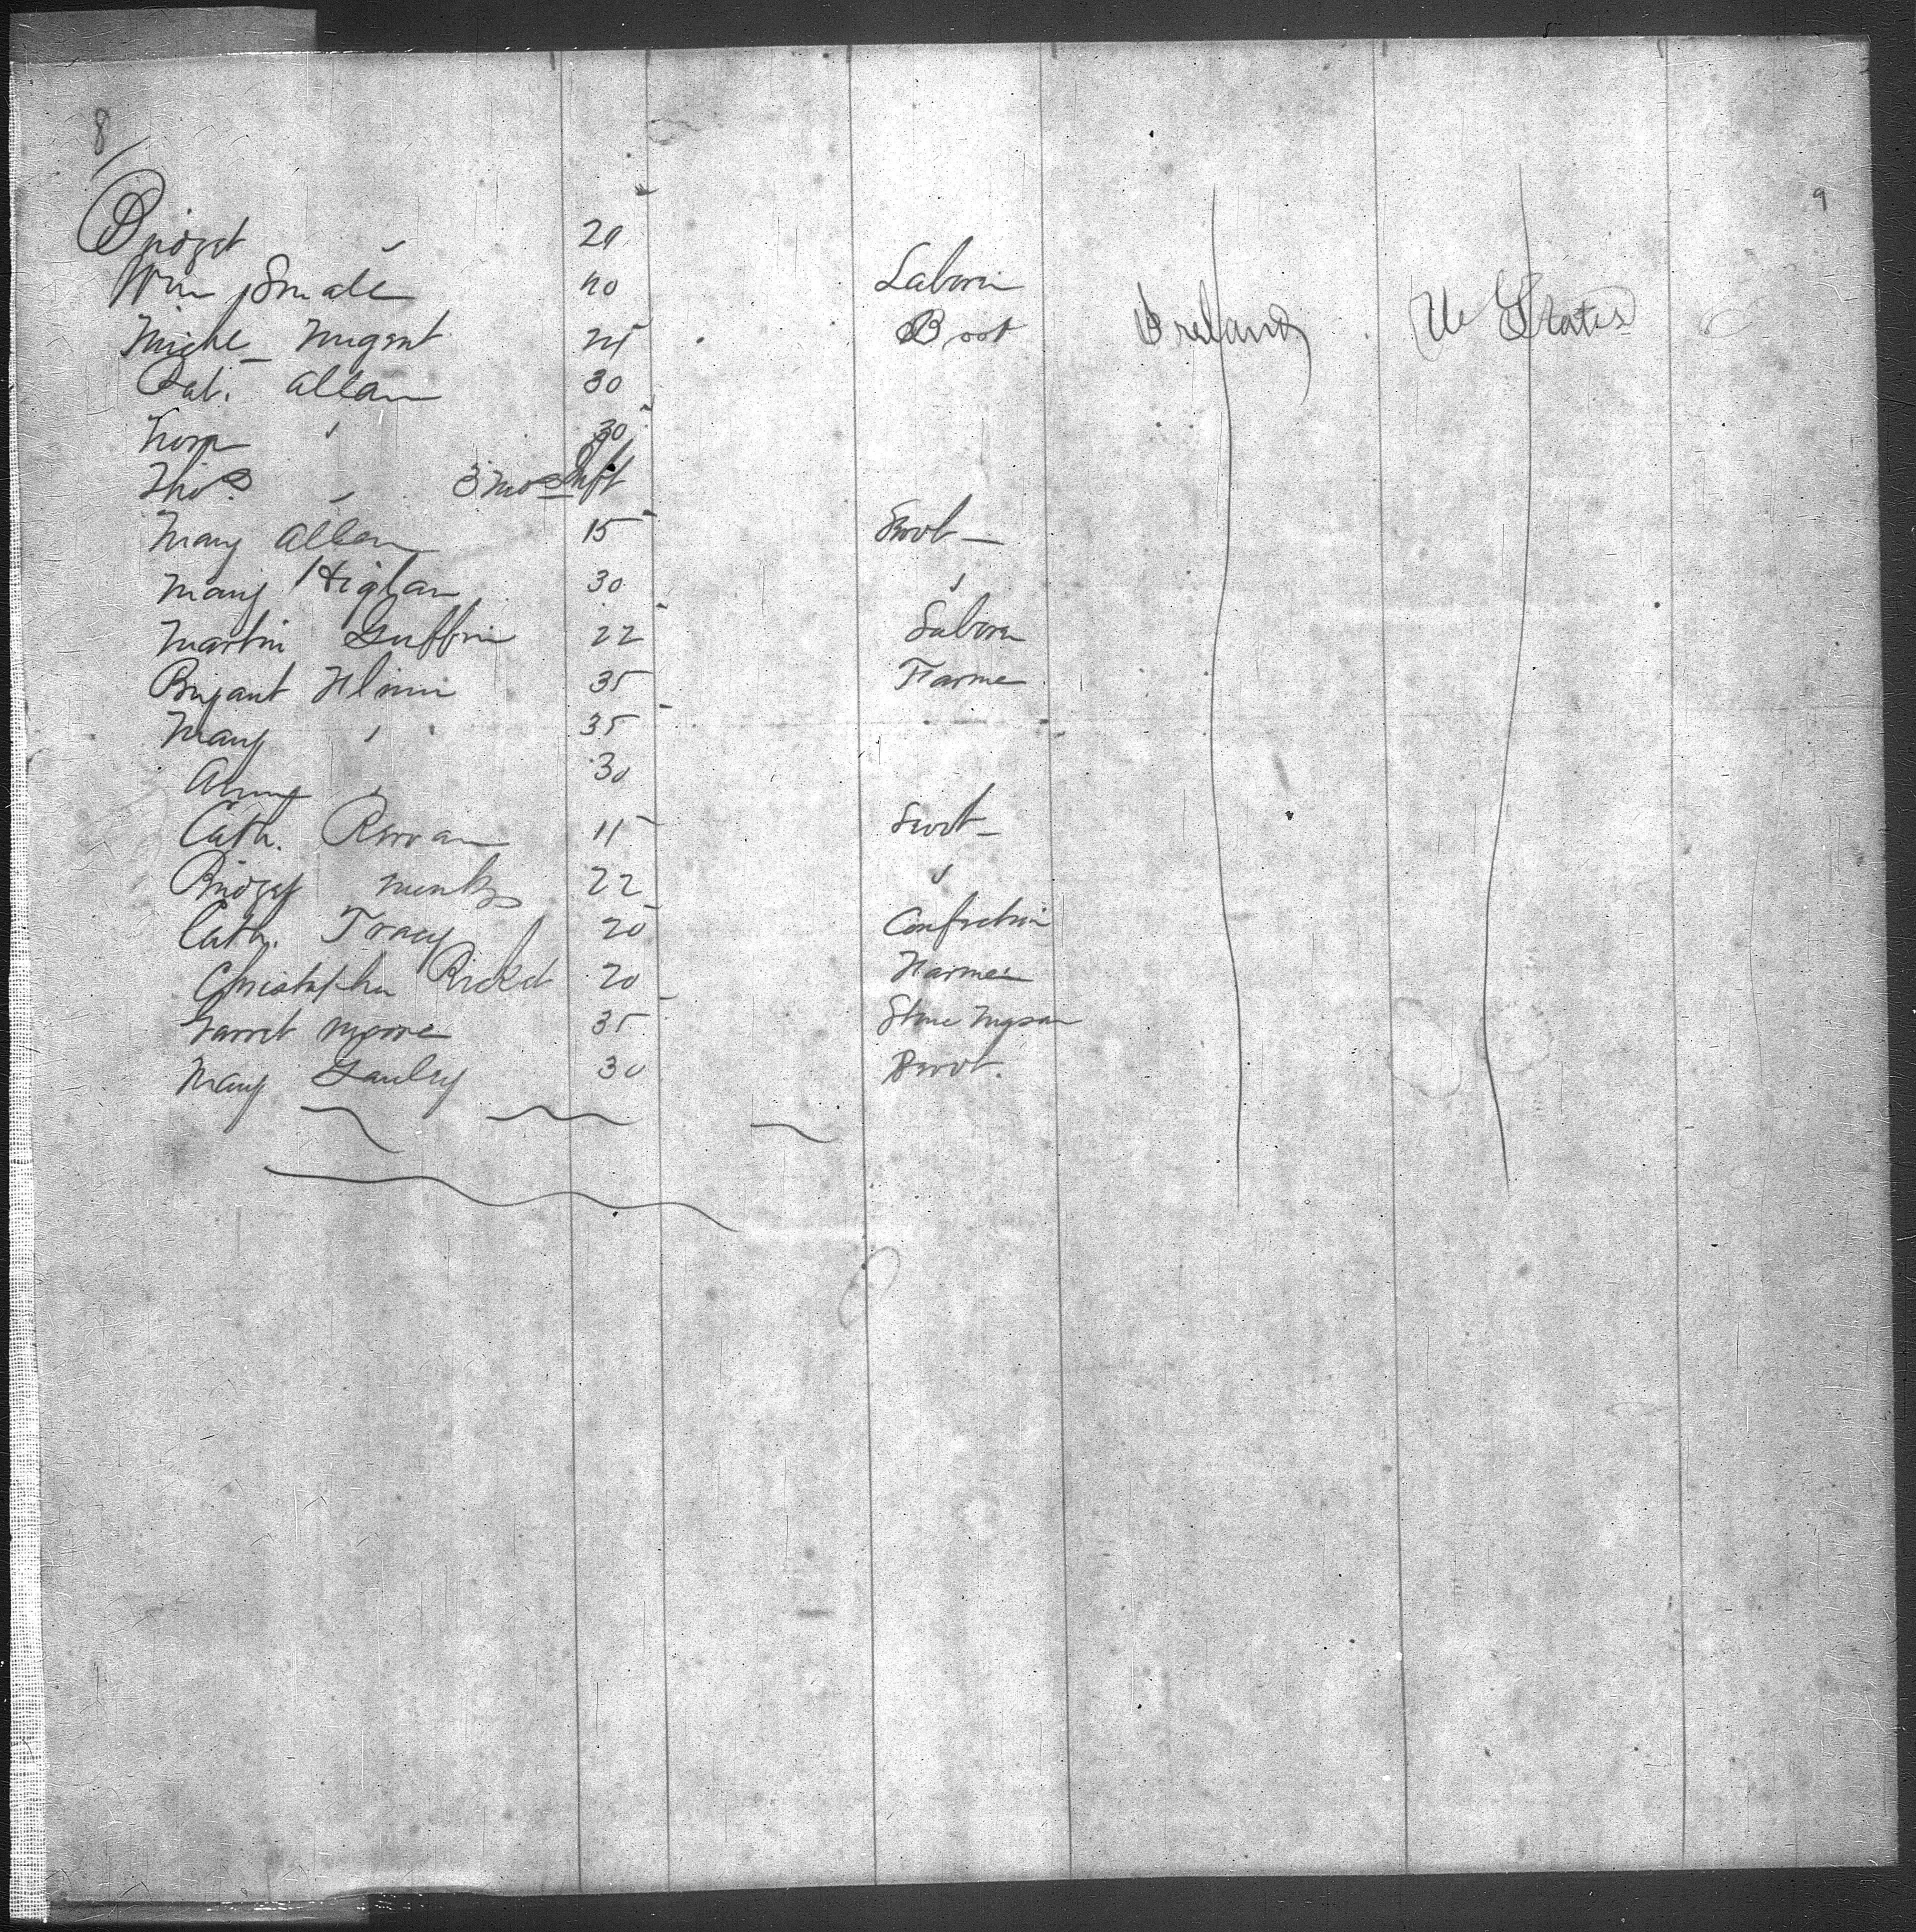 8
9
Bridget " 20
Wm Smale 40 Laborer
Miche Nugent 24 Ireland U States
Pat. Allan 30
Nora " 30
Thos. " 3 mos Inft
Mary Allen 15 Servt
Mary Higlan 30 "
Martin Guffin 22 Labore
Bryant Flinn 35 Farme
Mary " 35
30
Cath. 15 Servt
Bridget Menks 22 "
Cath. Tracy 20
Christopher 20 Farmer
Garret Moore 35 Stone Mason
Mary 30 Servt.